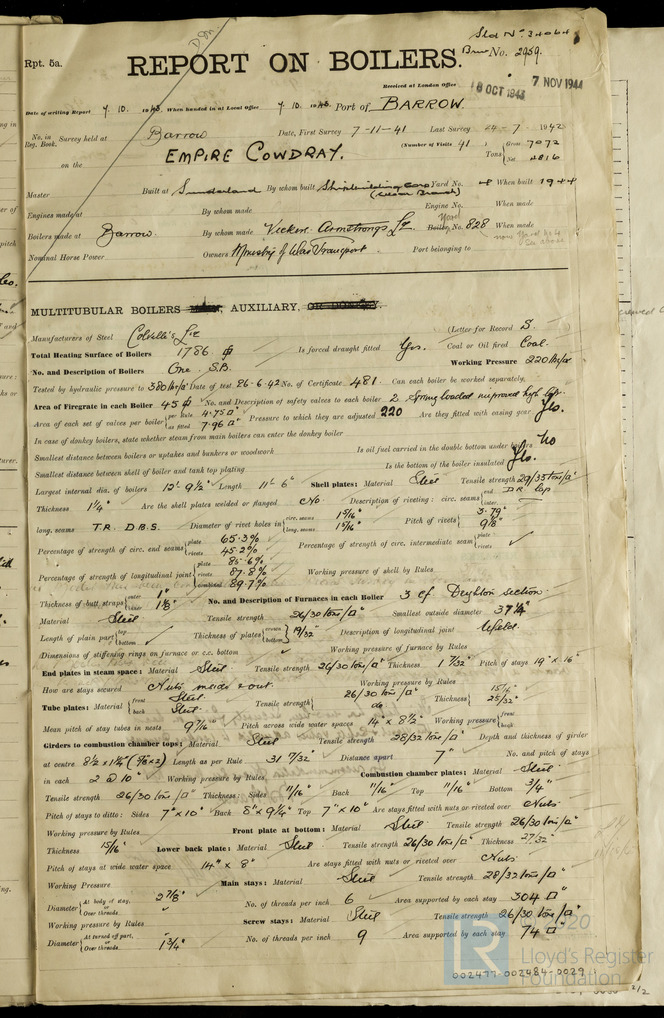 Sld No 34064
Rpt. 5a.
REPORT ON BOILERS.
No. 2959.
Received at London Office
18 OCT 1943
7 NOV 1944
Date of writing Report 7. 10. 1943. When handed in at Local Office 7. 10. 1943. Port of BARROW.
No. in Reg. Book. Survey held at Barrow Date, First Survey 7-11-41 Last Survey 24-7 1942
(Number of Visits 41)
on the EMPIRE COWDRAY.
Tons { Gross 7072
Net 4816
Master Built at Sunderland By whom built Shipbuilding Corp Yard No. 4 When built 1944
Engines made at By whom made Engine No. When made
Boilers made at Barrow. By whom made Vickers Armstrongs Ld. Boiler No. 828 When made
Nominal Horse Power Owners Ministry of War Transport Port belonging to
MULTITUBULAR BOILERS , AUXILIARY, OR DONKEY.
Manufacturers of Steel Colville's Ltd (Letter for Record S.
Total Heating Surface of Boilers 1786 Is forced draught fitted Yes. Coal or Oil fired Coal.
No. and Description of Boilers One S.B. Working Pressure 220
Tested by hydraulic pressure to 380 Date of test 26-6-42 No. of Certificate 481. Can each boiler be worked separately
Area of Firegrate in each Boiler 45 No. and Description of safety valves to each boiler 2 Spring loaded improved high lift.
Area of each set of valves per boiler { per Rule 4.75 as fitted 7.96 Pressure to which they are adjusted 220 Are they fitted with easing gear Yes.
In case of donkey boilers, state whether steam from main boilers can enter the donkey boiler
Smallest distance between boilers or uptakes and bunkers or woodwork Is oil fuel carried in the double bottom under boilers No
Smallest distance between shell of boiler and tank top plating Is the bottom of the boiler insulated Yes.
Largest internal dia. of boilers 12'- 9½" Length 11'- 6" Shell plates: Material Steel Tensile strength 29/33 tons/□"
Thickness 1¼" Are the shell plates welded or flanged No Description of riveting: circ. seams { end D.R. Lap inter.
long. seams T.R. D.B.S. Diameter of rivet holes in { circ. seams 1 5/16" long. seams 1 5/16" Pitch of rivets { 3.79" 9⅛"
Percentage of strength of circ. end seams { plate 65.3% rivets 45.2% Percentage of strength of circ. intermediate seam { plate rivets
Percentage of strength of longitudinal joint { plate 85.6% rivets 87.8% combined 89.7% Working pressure of shell by Rules
Thickness of butt straps { outer 1" inner 1⅛" No. and Description of Furnaces in each Boiler 3 Cf Deighton section.
Material Steel Tensile strength 26/30 tons/□" Smallest outside diameter 37¼"
Length of plain part { top bottom Thickness of plates { crown bottom 19/32" Description of longitudinal joint Weld.
Dimensions of stiffening rings on furnace or c.c. bottom Working pressure of furnace by Rules
End plates in steam space: Material Steel Tensile strength 26/30 tons/□" Thickness 1 7/32" Pitch of stays 19" × 16"
How are stays secured Nuts inside & out. Working pressure by Rules
Tube plates: Material { front Steel back Steel. Tensile strength { 26/30 tons/□" do Thickness { 15/16" 25/32"
Mean pitch of stay tubes in nests 9 7/16" Pitch across wide water spaces 14" × 8½" Working pressure { front back
Girders to combustion chamber tops: Material Steel Tensile strength 28/32 tons/□" Depth and thickness of girder
at centre 8½ × 1¼ (⅝×2) Length as per Rule 31 7/32" Distance apart 7" No. and pitch of stays
in each 2 @ 10" Working pressure by Rules Combustion chamber plates: Material Steel
Tensile strength 26/30 tons/□" Thickness: Sides 11/16" Back 11/16" Top 11/16" Bottom 3/4"
Pitch of stays to ditto: Sides 7" × 10" Back 8" × 9¼" Top 7" × 10" Are stays fitted with nuts or riveted over Nuts.
Working pressure by Rules Front plate at bottom: Material Steel Tensile strength 26/30 tons/□"
Thickness 15/16" Lower back plate: Material Steel Tensile strength 26/30 tons/□" Thickness 27/32"
Pitch of stays at wide water space 14" × 8" Are stays fitted with nuts or riveted over Nuts.
Working Pressure Main stays: Material Steel Tensile strength 28/32 tons/□"
Diameter { At body of stay, or Over threads 2⅞" No. of threads per inch 6 Area supported by each stay 304 □"
Working pressure by Rules Screw stays: Material Steel Tensile strength 26/30 tons/□"
Diameter { At turned off part, or Over threads 1¾" No. of threads per inch 9 Area supported by each stay 74 □"
© 2020
Lloyd's Register
Foundation
002477-002484-0029 1/2